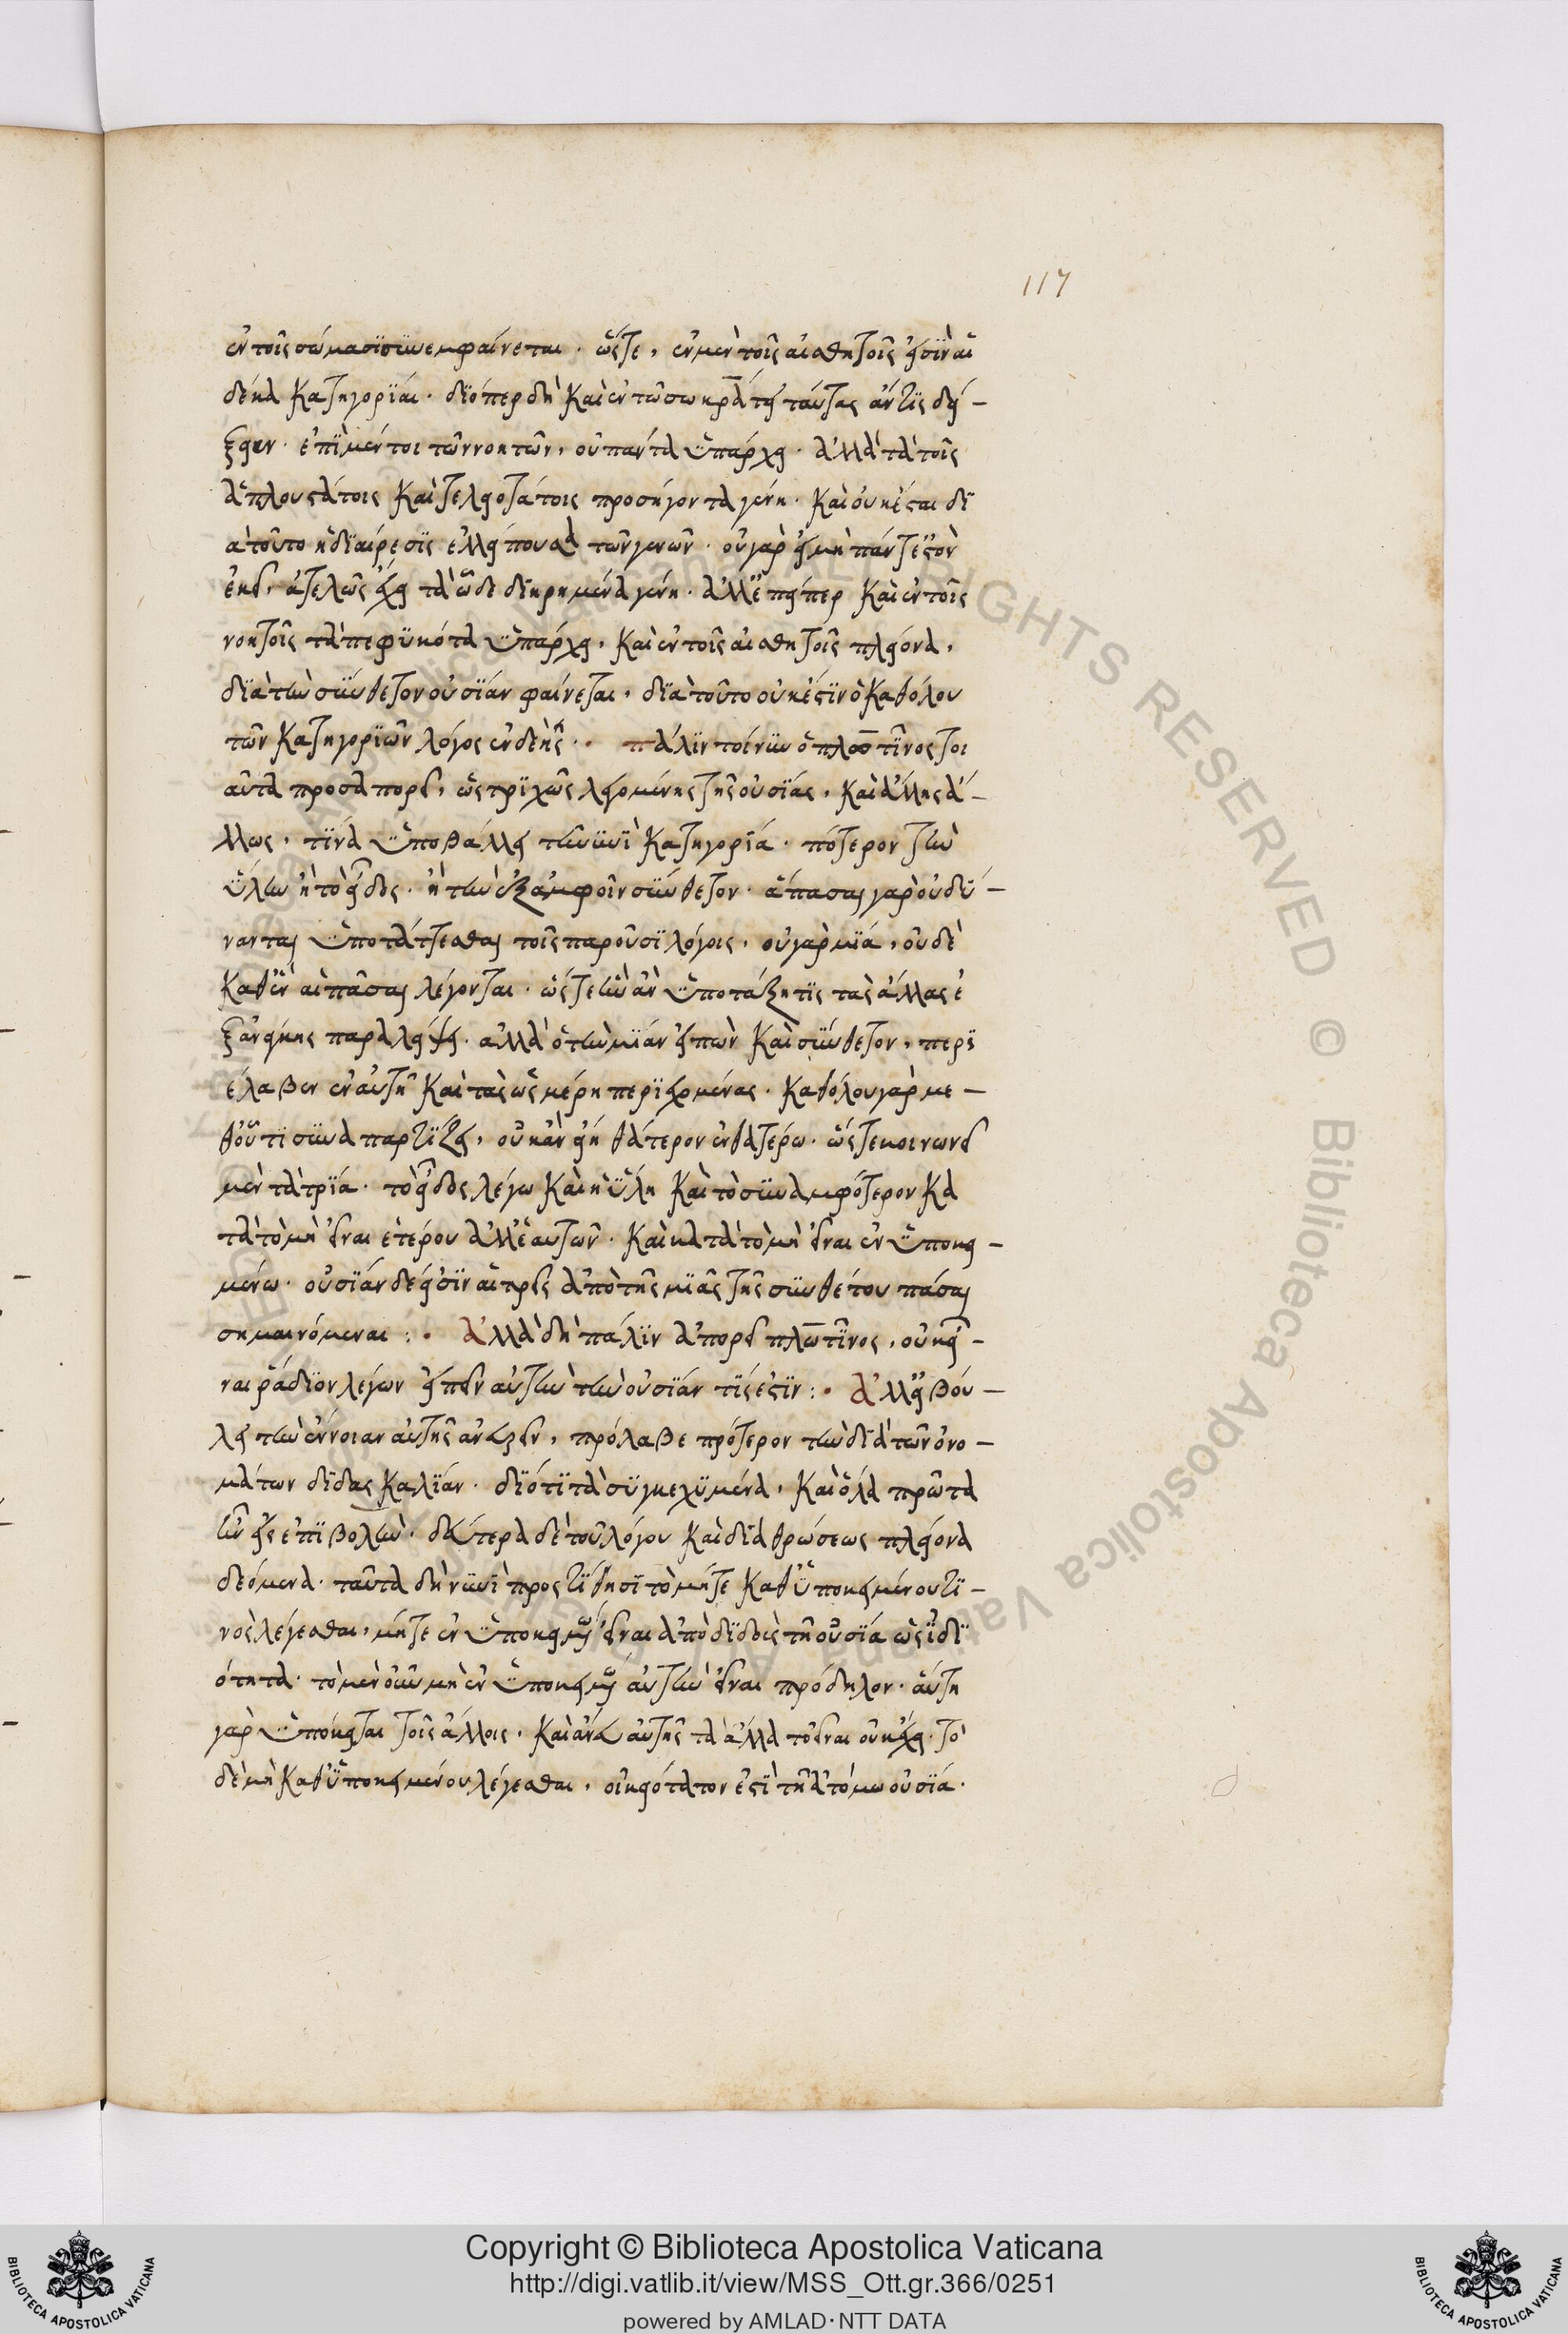 117
ἐν τοῖς σώμασϊ συνεμφαίνεται. ὥστε, ἐν μὲν τοῖς αἰσθητοῖς εἰσὶν αἱ
δέκα κατηγορίαι. διόπερ δὴ καὶ ἐν τῶ σωκράτει ταύτας ἄν τις δεί-
ξειεν. ἐπὶ μέντοι τῶν νοητῶν, οὐ πάντα ὑπάρχει. ἀλλὰ τὰ τοῖς
ἁπλουστάτοις καὶ τελειοτάτοις προσήκοντα γένη. καὶ οὐκ ἔσται δι
ὰ τοῦτο ἡ διαίρεσις ἐλλείπουσα τῶν γενῶν. οὐ γὰρ εἰ μὴ πάντ' ἐστὶν
ἐκεῖ, ἀτελῶς ἔχει τὰ ὧδε διηρημένα γένη. ἀλλ' ἐπείπερ καὶ ἐν τοῖς
νοητοῖς τὰ πεφυκότα ὑπάρχει, καὶ ἐν τοῖς αἰσθητοῖς πλείονα,
διὰ τὴν σύνθετον οὐσίαν φαίνεται, διὰ τοῦτο οὐκ ἔστιν ὁ καθόλου
τῶν κατηγοριῶν λόγος ἐνδεής. πάλιν τοίνυν ὁ πλωτῖνός τοι
αῦτα προσαπορεῖ, ὡς τριχῶς λεγομένης τῆς οὐσίας, καὶ ἄλλης ἄ-
λλως, τίνα ὑποβάλλει τῆ νυνὶ κατηγορία. πότερον τὴν
ὕλην ἢ τὸ εἶδος. ἢ τὴν ἐξ ἀμφοῖν σύνθετον. ἅπασαι γὰρ οὐ δύ-
νανται ὑποτάττεσθαι τοῖς παροῦσι λόγοις, οὐ γὰρ μία, οὐδὲ
καθ' ἓν αἱ πᾶσαι λέγονται. ὥστε ἣν ἂν ὑποτάξη τις τὰς ἄλλας ἐ
ξ ἀνάγκης παραλείψει. ἀλλ' ὁ τὴν μίαν εἰπὼν καὶ σύνθετον, περι
έλαβεν ἐν αὐτῆ καὶ τὰς ὡς μέρη περιεχομένας. καθόλου γὰρ με-
θοῦ τι συναπαρτίζει, οὐκ ἂν εἴη θάτερον ἐν θατέρω. ὥστε κοινωνεῖ
μὲν τὰ τρία. τὸ εἶδος λέγω καὶ ἡ ὕλη καὶ τὸ συναμφότερον κα
τὰ τὸ μὴ εἶναι ἑτέρου ἀλλ' ἑαυτῶν. καὶ κατὰ τὸ μὴ εἶναι ἐν ὑποκει-
μένω. οὐσίαν δέ εἰσιν αἱ τρεῖς ἀπὸ τῆς μιᾶς τῆς συνθέτου πᾶσαι
σημαινόμεναι: ἀλλὰ δὴ πάλιν ἀπορεῖ πλωτῖνος, οὐκ εἶ-
ναι ῥάδιον λέγων εἰπεῖν αὐτὴν τὴν οὐσίαν τίς ἐστιν: ἀλλ' εἰ βού-
λει τὴν ἔννοιαν αὐτῆς ἀνευρεῖν, πρόλαβε πρότερον τὴν διὰ τῶν ὀνο-
μάτων διδασκαλίαν. διότι τὰ συγκεχυμένα, καὶ ὅλα πρῶτα
ὧν εἰς ἐπιβολὴν. δεύτερα δὲ τοῦ λόγου καὶ διαθρώσεως πλείονα
δεόμενα. ταῦτα δὴ νυνὶ προστίθησι τὸ μήτε καθ' ὑποκειμένου τι-
νὸς λέγεσθαι, μήτε ἐν ὑποκειμένω εἶναι ἀποδιδοὺς τῆ οὐσία ὡς ἰδι
ότητα. τὸ μὲν οὖν μὴ ἐν ὑποκειμένω αὐτὴν εἶναι πρόδηλον. αὕτη
γὰρ ὑπόκειται τοῖς ἄλλοις, καὶ ἄνευ αὐτῆς τὰ ἄλλα τὸ εἶναι οὐκ ἔχει. τὸ
δὲ μὴ καθ' ὑποκειμένου λέγεσθαι, οἰκειότατον ἐστὶ τῆ ἀτόμω οὐσία.
Copyright © Biblioteca Apostolica Vaticana
http://digi.vatlib.it/view/MSS_Ott.gr.366/0251
powered by AMLAD·NTT DATA